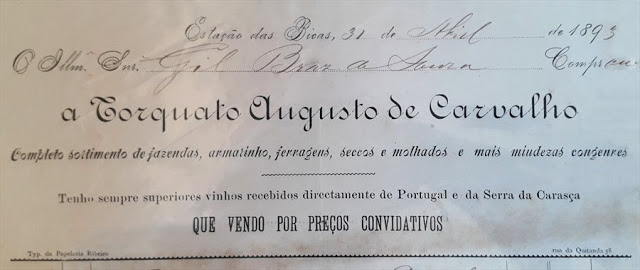 Estação das Bicas, 31 de Abril de 1893
O Illm. Snr. Gil Braz de Souza Comprou
a Torquato Augusto de Carvalho
Completo sortimento de fazendas, armarinho, ferragens, seccos e molhados e mais miudezas congenres
Tenho sempre superiores vinhos recebidos directamente de Portugal e da Serra da Carasça
QUE VENDO POR PREÇOS CONVIDATIVOS
Typ. da Papelaria Ribeiro rua da Quitanda 58